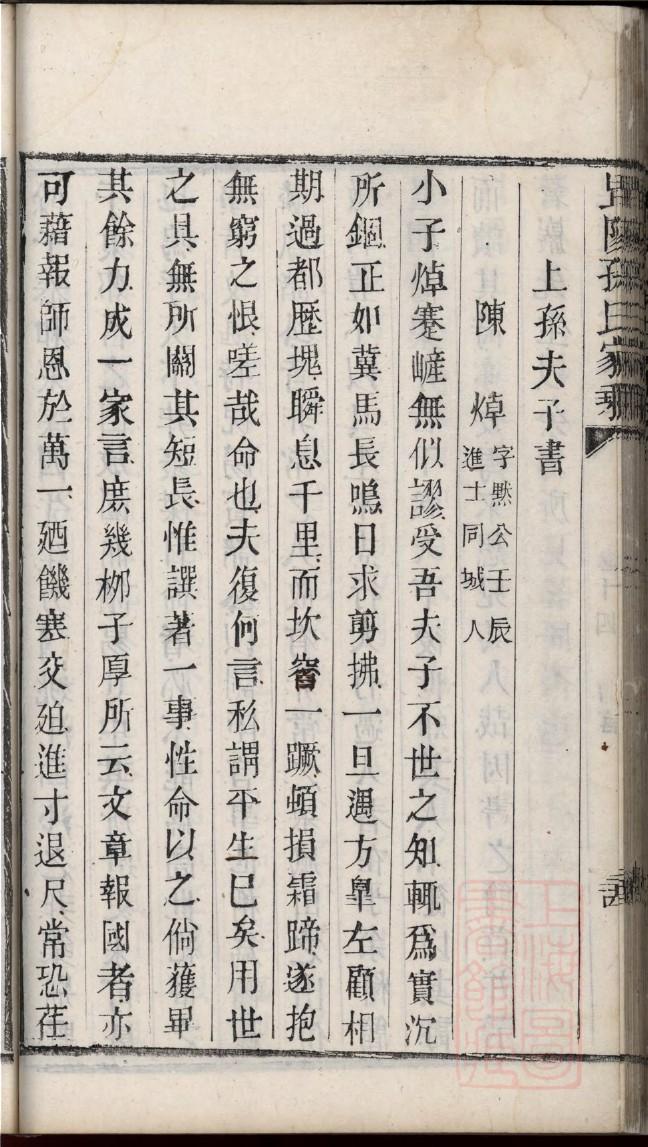 孫氏家乘
上孫夫子書
陳焯 字默公壬辰
進士同城人
小子焯蹇嵯無似謬受吾夫子不世之知輒爲實沉
所錮正如冀馬長鳴日求剪拂一旦遇方臯左顧相
期過都歷塊瞬息千里而坎窞一蹶頓損霜蹄遂抱
無窮之恨嗟哉命也夫復何言私謂平生已矣用世
之具無所關其短長惟譔著一事性命以之倘獲畢
其餘力成一家言庶幾栁子厚所云文章報國者亦
可藉報師恩於萬一廼饑寒交廹進寸退尺常恐荏
上海圖書館藏